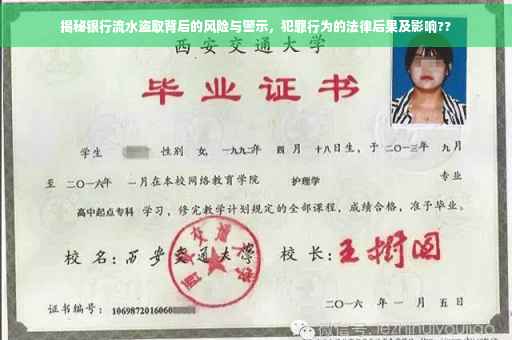 揭秘银行流水盗取背后的风险与警示，犯罪行为的法律后果及影响??
西安交通大学
毕业证书
学生 性别 女, 一九九二年 四月 十八日生, 于二〇一三年 九月
至 二〇一六年 一月在本校网络教育学院 护理学 专业
高中起点专科 学习, 修完教学计划规定的全部课程, 成绩合格, 准予毕业。
校名: 西安交通大学 校长: 王树国
证书编号: 1069872016060
二〇一六年 一月 五日
微信号: jiezhinuiyoujiao